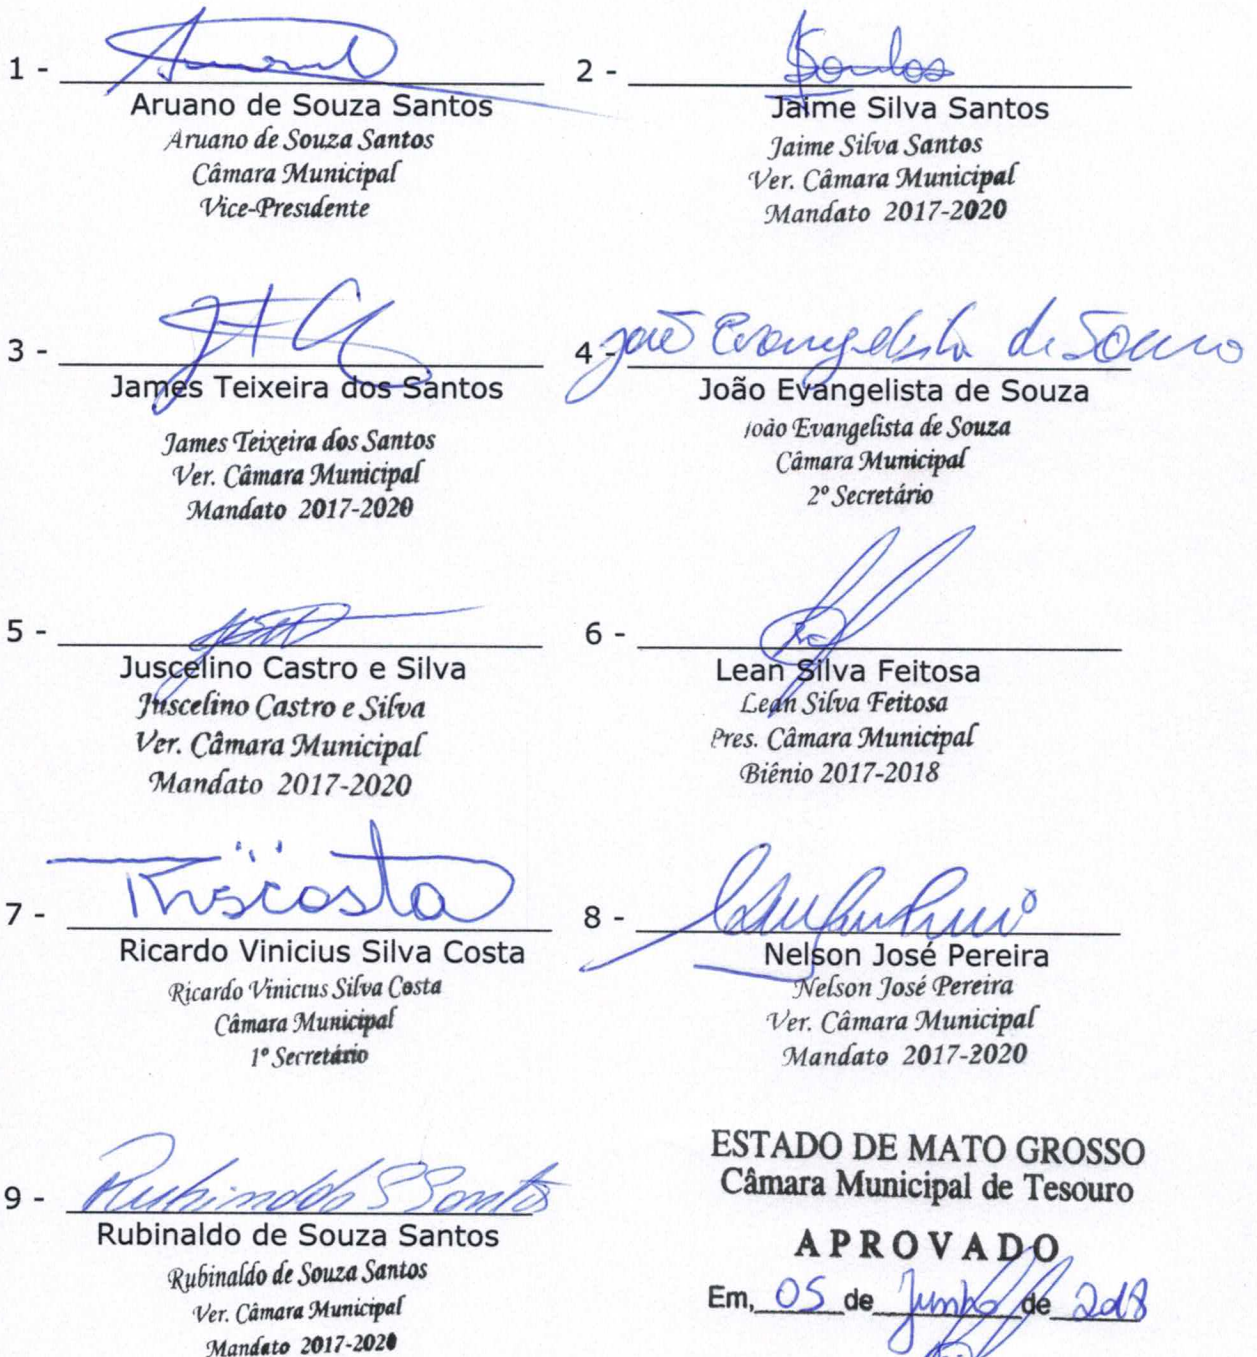 1 -
Aruano de Souza Santos
Aruano de Souza Santos
Câmara Municipal
Vice-Presidente
2 - Santos
Jaime Silva Santos
Jaime Silva Santos
Ver. Câmara Municipal
Mandato 2017-2020
3 -
James Teixeira dos Santos
James Teixeira dos Santos
Ver. Câmara Municipal
Mandato 2017-2020
4 - João Evangelista de Souza
João Evangelista de Souza
João Evangelista de Souza
Câmara Municipal
2º Secretário
5 -
Juscelino Castro e Silva
Juscelino Castro e Silva
Ver. Câmara Municipal
Mandato 2017-2020
6 -
Lean Silva Feitosa
Lean Silva Feitosa
Pres. Câmara Municipal
Biênio 2017-2018
7 -
Ricardo Vinicius Silva Costa
Ricardo Vinicius Silva Costa
Câmara Municipal
1º Secretário
8 -
Nelson José Pereira
Nelson José Pereira
Ver. Câmara Municipal
Mandato 2017-2020
9 - Rubinaldo S Santos
Rubinaldo de Souza Santos
Rubinaldo de Souza Santos
Ver. Câmara Municipal
Mandato 2017-2020
ESTADO DE MATO GROSSO
Câmara Municipal de Tesouro
APROVADO
Em, 05 de Junho de 2018